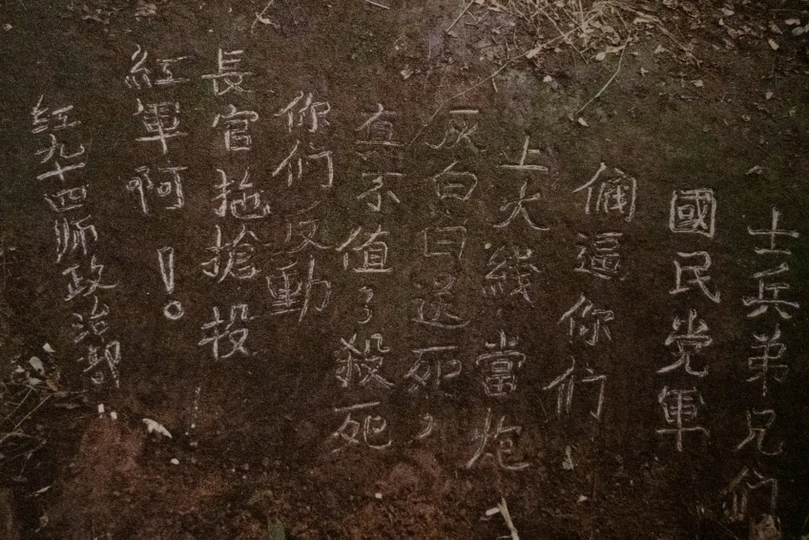 士兵弟兄们
國民党軍
阀逼你们
上火綫,當炮
灰白白送死,
直不值了殺死
你们反動
長官拖搶投
紅軍啊!
红九十四师政治部